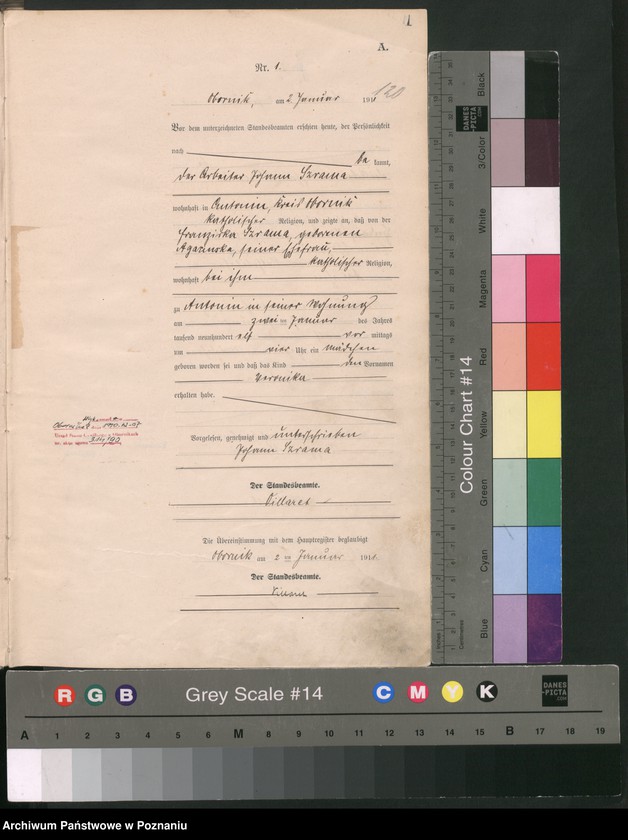 1
A.
Nr. 1.
Obornik, am 2 Januar 1911
120
Vor dem unterzeichneten Standesbeamten erschien heute, der Persönlichkeit
nach be kannt,
der Arbeiter Johann Szrama
wohnhaft in Antonin, Kreis Obornik
katholischer Religion, und zeigte an, daß von der
Franziska Szrama, geborenen
seiner Ehefrau,
katholischer Religion,
wohnhaft bei ihm
zu Antonin in seiner Wohnung
am zwei ten Januar des Jahres
tausend neunhundert elf vor mittags
um vier Uhr ein Mädchen
geboren worden sei und daß das Kind den Vornamen
Veronika
erhalten habe.
Vorgelesen, genehmigt und unterschrieben
Johann Szrama
Der Standesbeamte.
Die Übereinstimmung mit dem Hauptregister beglaubigt
Obornik am 2 ten Januar 1911.
Der Standesbeamte.
Colour Chart #14
Black
3/Color
White
Magenta
Red
Yellow
Green
Cyan
Blue
Inches
Centimetres
DANES
-PICTA
.COM
R G B Grey Scale #14 C M Y K
DANES
-PICTA
.COM
A 1 2 3 4 5 6 M 8 9 10 11 12 13 14 15 B 17 18 19
Archiwum Państwowe w Poznaniu